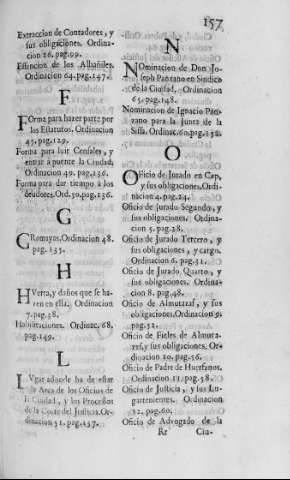 157
Extraccion de Contadores, y
sus obligaciones. Ordina-
cion 26. pag.99.
Essencion de los Albañiles.
Ordinacion 64. pag.147.
F
Forma para hazer parte por
los Estatutos. Ordinacion
45. pag.129.
Forma para luir Censales, y
entrar á puerte la Ciudad.
Ordinacion 49. pag.136.
Forma para dar tiempo à los
deudores. Ord.50. pag.136.
G
GRemayes. Ordinacion 48.
pag.135.
H
HVerta, y daños que se ha-
ren en ella. Ordinacion
7. pag.38.
Habilitaciones. Ordinac.68.
pag.149.
L
LVgar adonde ha de estar
la Arca de los Oficios de
la Ciudad, y los Processos
de la Corte del Justicia. Or-
dinacion 51. pag.137.
N
NOminacion de Don Jo-
seph Panzano en Sindico
de la Ciudad. Ordinacion
65. pag.148.
Nominacion de Ignacio Pan-
zano para la Junta de la
Sissa. Ordinac.60. pag.150.
O
OFicio de Jurado en Cap,
y sus obligaciones. Ordi-
nacion 4. pag.24.
Oficio de Jurado Segundo, y
sus obligaciones. Ordina-
cion 5. pag.28.
Oficio de Jurado Tercero, y
sus obligaciones, y cargo.
Ordinacion 6. pag.31.
Oficio de Jurado Quarto, y
sus obligaciones. Ordina-
cion 8. pag.48.
Oficio de Almutazaf, y sus
obligaciones. Ordinacion 9.
pag.52.
Oficio de Fieles de Almuta-
zef, y sus obligaciones. Or-
dinacion 10. pag.56.
Oficio de Padre de Huerfanos.
Ordinacion 11. pag.58.
Oficio de Justicia, y sus Lu-
gartenientes. Ordinacion
12. pag.60.
Oficio de Advogado de la
Rr Ciu-